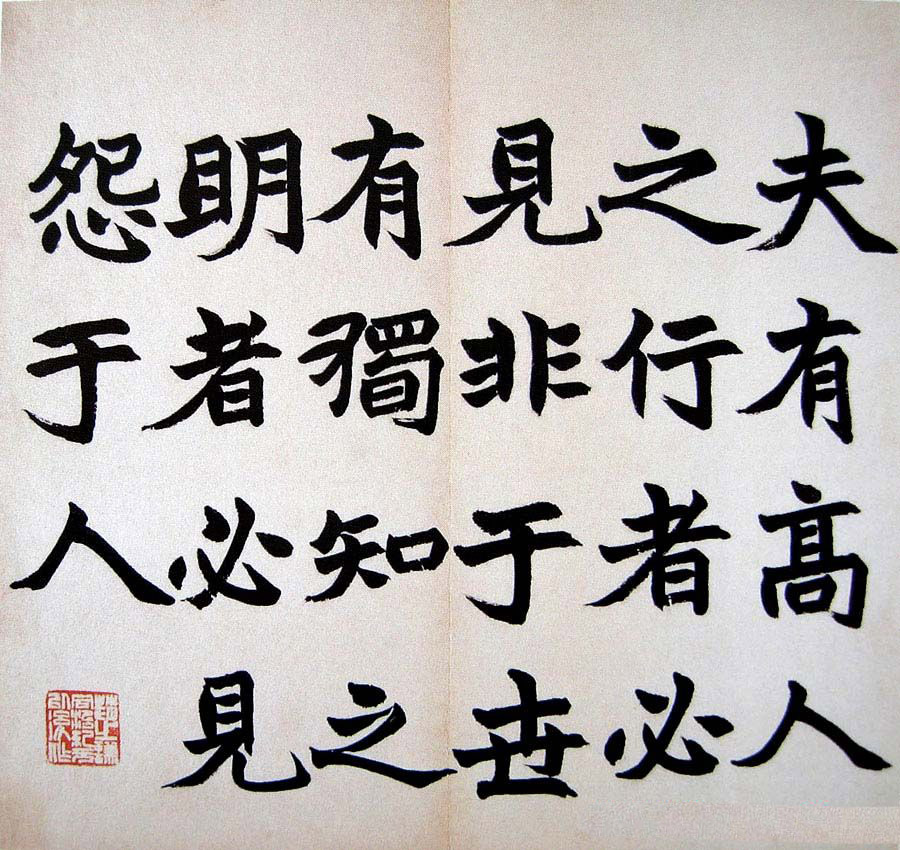 夫有髙人
之行者必
見非于世
有獨知之
明者必見
怨于人